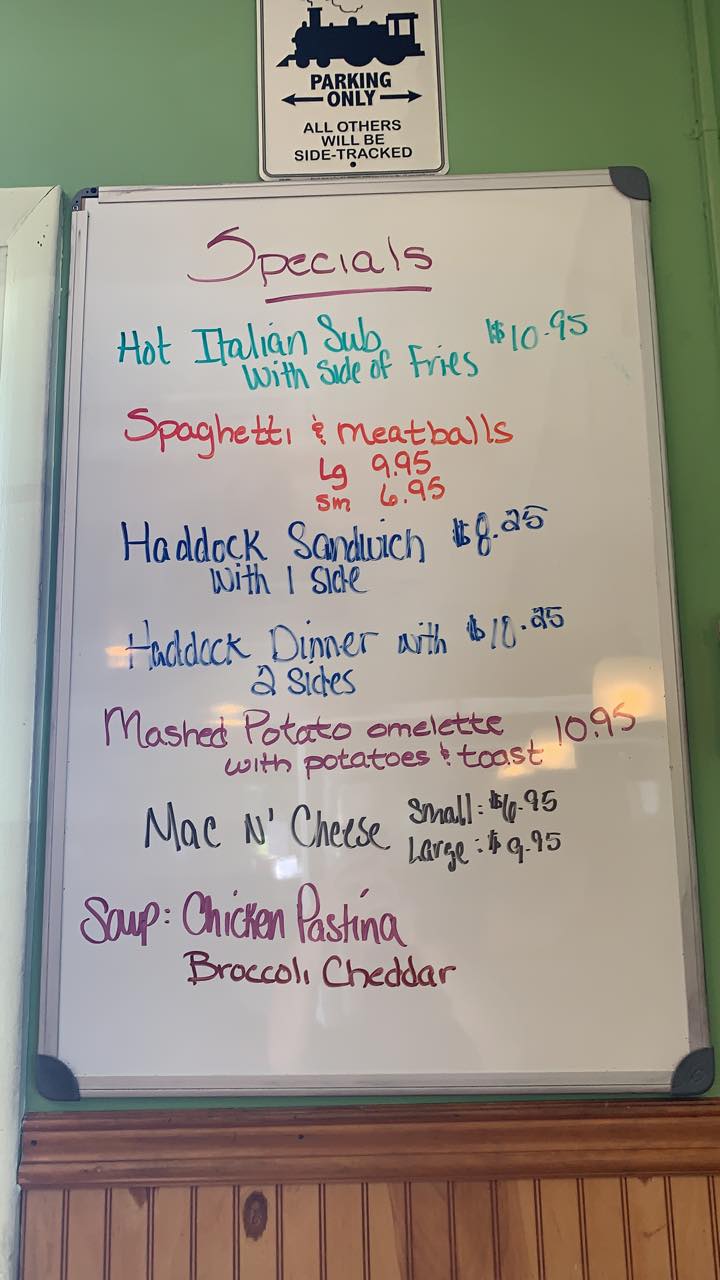 PARKING
ONLY
ALL OTHERS
WILL BE
SIDE-TRACKED
Specials
Hot Italian Sub $10.95
With Side of Fries
Spaghetti & meatballs
Lg 9.95
Sm 6.95
Haddock Sandwich $8.25
With 1 Side
Haddock Dinner with
2 Sides
Mashed Potato omelette 10.95
with potatoes & toast
Mac N' Cheese Small: $6.95
Large: $9.95
Soup: Chicken Pastina
Broccoli Cheddar